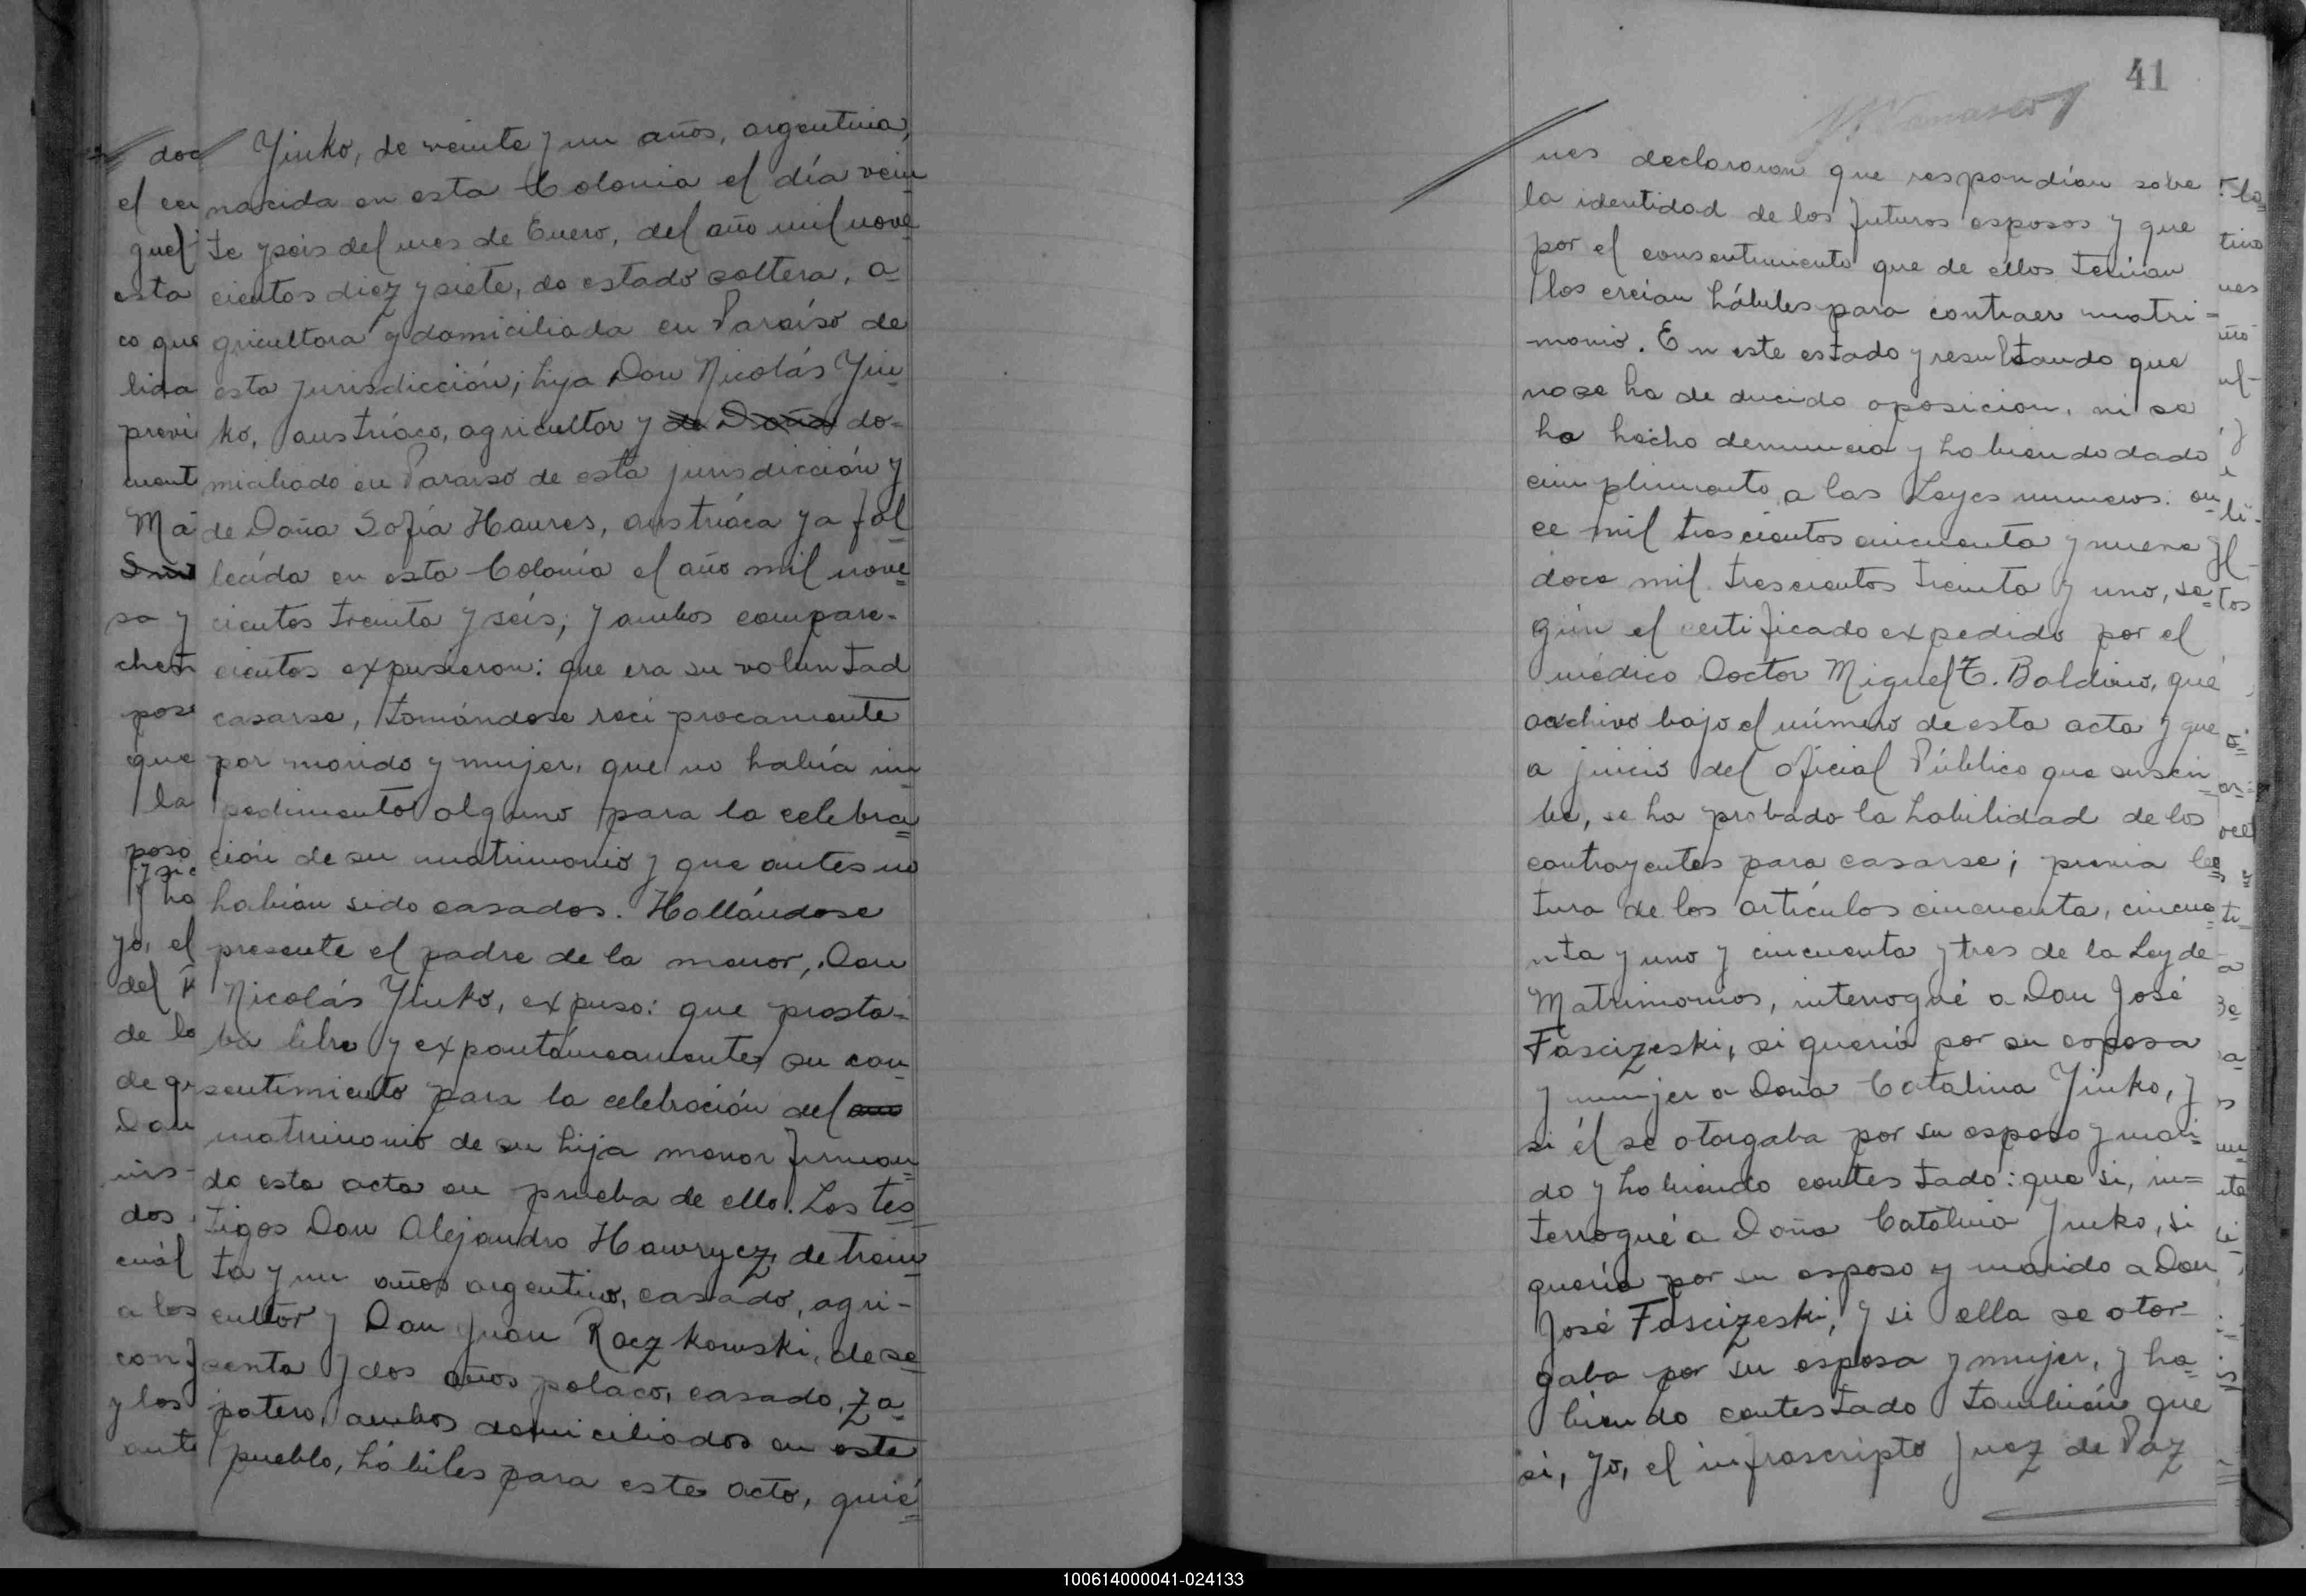 Yinko, de veinte y un años, argentina,
nacida en esta Colonia el día vein
te y seis del mes de Enero, del año mil nove
cientos diez y siete, de estado soltera, a
gricultora y domiciliada en Paraíso de
esta jurisdicción; hija Don Nicolás Yin
ko, austríaco, agricultor y de Doña do-
miciliado en Paraiso de esta jurisdicción y
de Doña Sofía Haures, austríaca ya fal
lecída en esta Colonia el año mil nove
cientos treinta y seis; y ambos compare-
cientes expusieron: que era su voluntad
casarse, tomándose reciprocamente
por marido y mujer, que no había im
pedimento alguno para la celebra
ción de su matrimonio y que antes no
habían sido casados. Hallándose
presente el padre de la menor, Don
Nicolás Yinko, expuso: que presta-
ba libre y expontáneamente su con
sentimiento para la celebración del
matrimonio de su hija menor firman
do esta acta en prueba de ello. Los tes
tigos Don Alejandro Hawrycz, de trein
ta y un años argentino, casado, agri-
cultor y Don Juan Raczkowski, de se
senta y dos años polaco, casado, za
patero, ambos domiciliados en este
pueblo, hábiles para este acto, quié
41
nes declararon que respondían sobre
la identidad de los futuros esposos y que
por el consentimiento que de ellos tenían
los creían hábiles para contraer matri-
monio. En este estado y resultando que
no se ha deducido oposicion, ni se
ha hecho denuncia y habiendo dado
cumplimiento a las Leyes numeros: on
ce mil trescientos cincuenta y nueve y
doce mil trescientos treinta y uno, se
gún el certificado expedido por el
médico Doctor Miguel T. Baldino, que
archivo bajo el número de esta acta y que
a juicio del oficial Público que suscri
be, se ha probado la habilidad de los
contrayentes para casarse; previa lec
tura de los artículos cincuenta, cincue
nta y uno y cincuenta y tres de la Ley de
Matrimonios, interrogué a Don José
Fascizeski, si quería por su esposa
y mujer a Doña Catalina Yinko, y
si él se otorgaba por su esposo y mari
do y habiendo contestado: que si, in=
terrogué a Doña Catalina Yinko, si
quería por su esposo y marido a Don
José Fascizeski, y si ella se otor
gaba por su esposa y mujer, y ha
biendo contestado también que
si, Yo, el infrascripto Juez de Paz
100614000041-024133